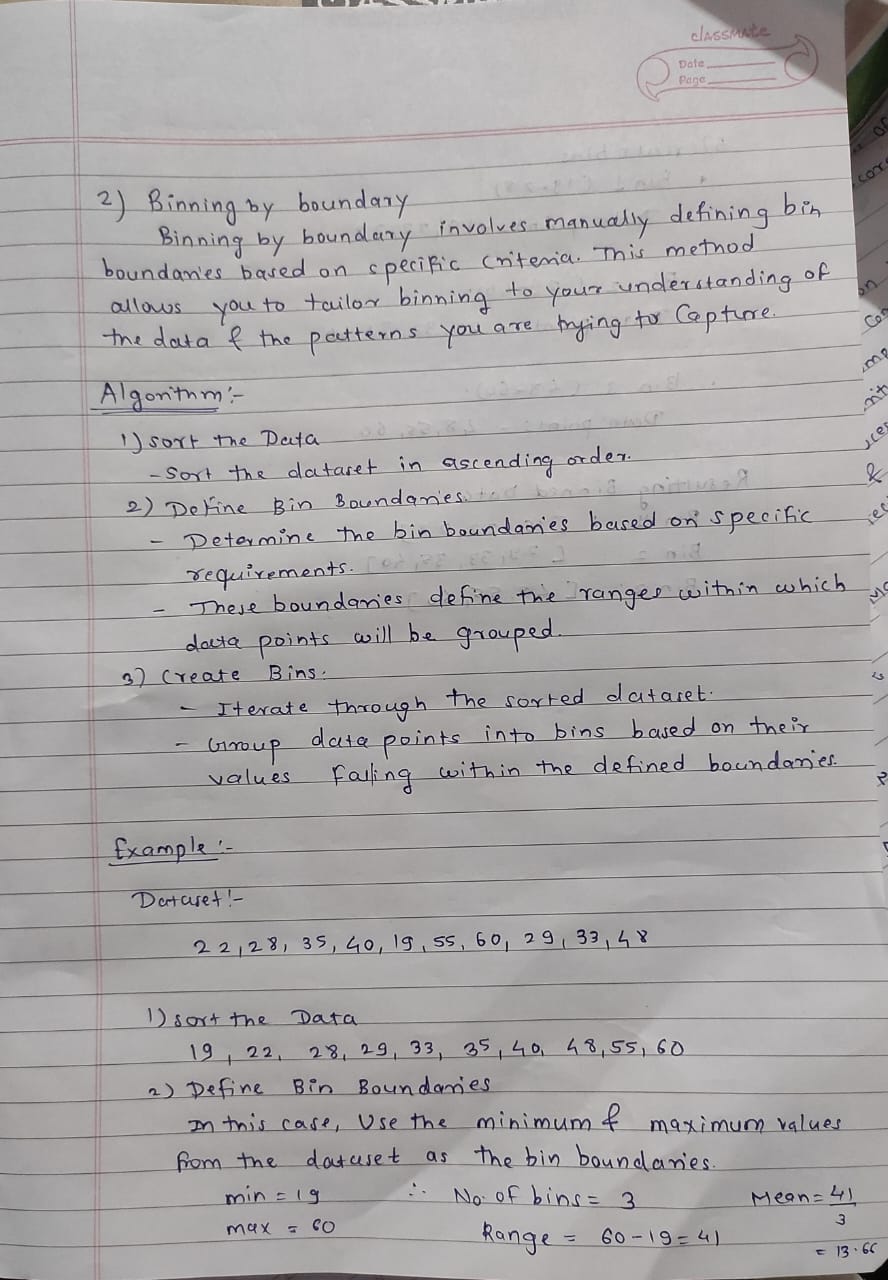 classmate
Date
Page
2) Binning by boundary
Binning by boundary involves manually defining bin
boundaries based on specific criteria. This method
allows you to tailor binning to your understanding of
the data & the patterns you are trying to Capture.
Algorithm:-
1) sort the Data
- Sort the dataset in ascending order.
2) Define Bin Boundaries.
- Determine the bin boundaries based on specific
requirements.
- These boundaries define the ranges within which
data points will be grouped.
3) Create Bins:
- Iterate through the sorted dataset.
- Group data points into bins based on their
values falling within the defined boundaries.
Example:-
Dataset:-
22, 28, 35, 40, 19, 55, 60, 29, 33, 48
1) sort the Data
19, 22, 28, 29, 33, 35, 40, 48, 55, 60
2) Define Bin Boundaries
In this case, Use the minimum & maximum values
from the dataset as the bin boundaries.
min = 19 ∴ No. of bins = 3 Mean = 41/3
max = 60 Range = 60-19 = 41 = 13.66